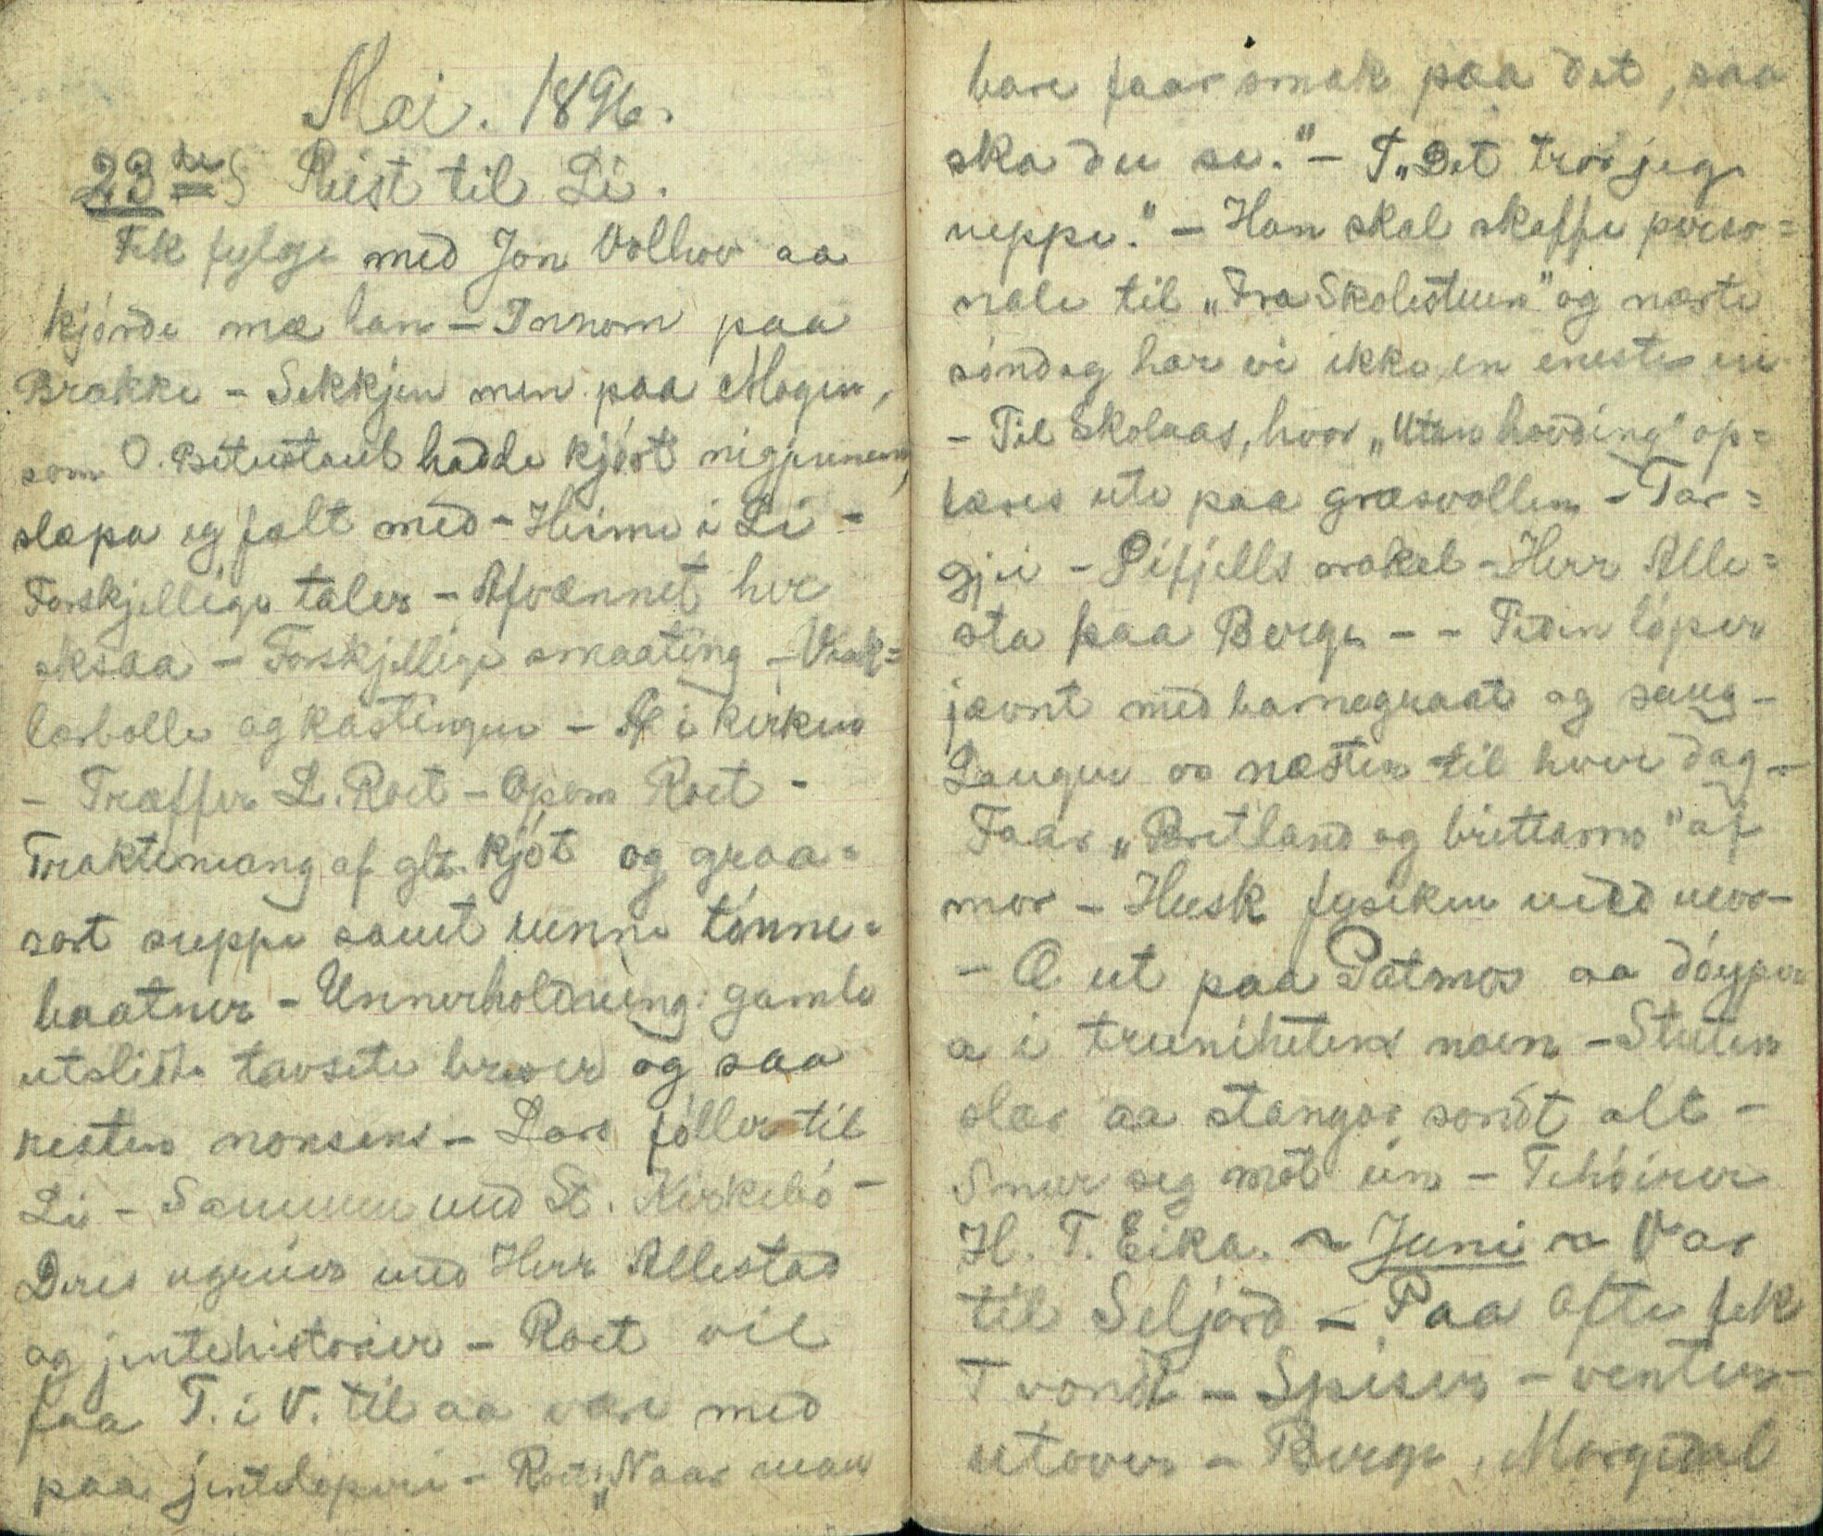 Mai. 1896.
23de Reist til Li.
Fek fylgje med Jon Volhov aa
kjørde mæ han – Innom paa
Brække – Sekkjen men paa Mogen,
som O. hadde kjørt
slæpa eg falt med – Heime i Li –
Forskjellige taler – Afvænnet her
oksaa – Forskjellige smaating –
og kastingen – i kirken
– Træffer L. Roet – Roet –
Traktemang af kjøt og graa=
sort suppe samt tønne=
baatner – Unnerholdning: gamle
utslidte tavsete brever og saa
resten nonsens – Lars føller til
Li – Sammen med St. Kirkebø –
Deres med Herr Allestad
og jentehistorier – Roet vil
faa T. i V. til aa være med
paa jenteloperi – Roet: „Naar man
bare faar smak paa det, saa
ska du se." – T. „Det tror jeg
neppe." – Han skal skaffe perso=
nale til „Fra Skolestuen" og næste
søndag har vi ikke en eneste en
– Til Skolaas, hvor „Utan hovding" op=
læres ute paa græsvollen – Tar=
gjei – orakel – Herr Alle=
sta paa Berge – – Tiden løper
jævnt med barnegraat og sang –
Laugur os næsten til hver dag –
Faar „Bretland og brittarne" af
mor – Husk fysiken
– O ut paa Patmos aa døyper
a i truniheitens namn – Stuten
slær aa stangar sondt alt –
Snur seg mot ein –
H. T. Eika. ~ Juni ~ Var
til Seljord – Paa Ofte fek
T vondt – Spiser – venter –
utover – Berge, Morgedal